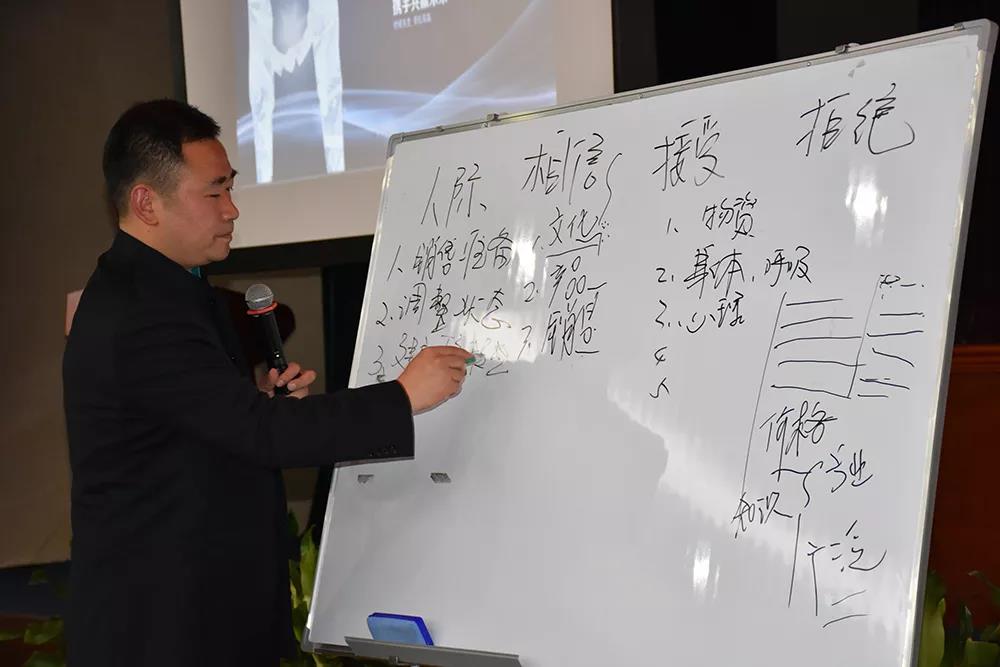 人际 相信 接受 拒绝
1、销售准备
2、调整状态
3、
1、文化
2、产品
3、销售
1、物资
2、身体、呼吸
3、
4
5
价格
专业
知识
广泛